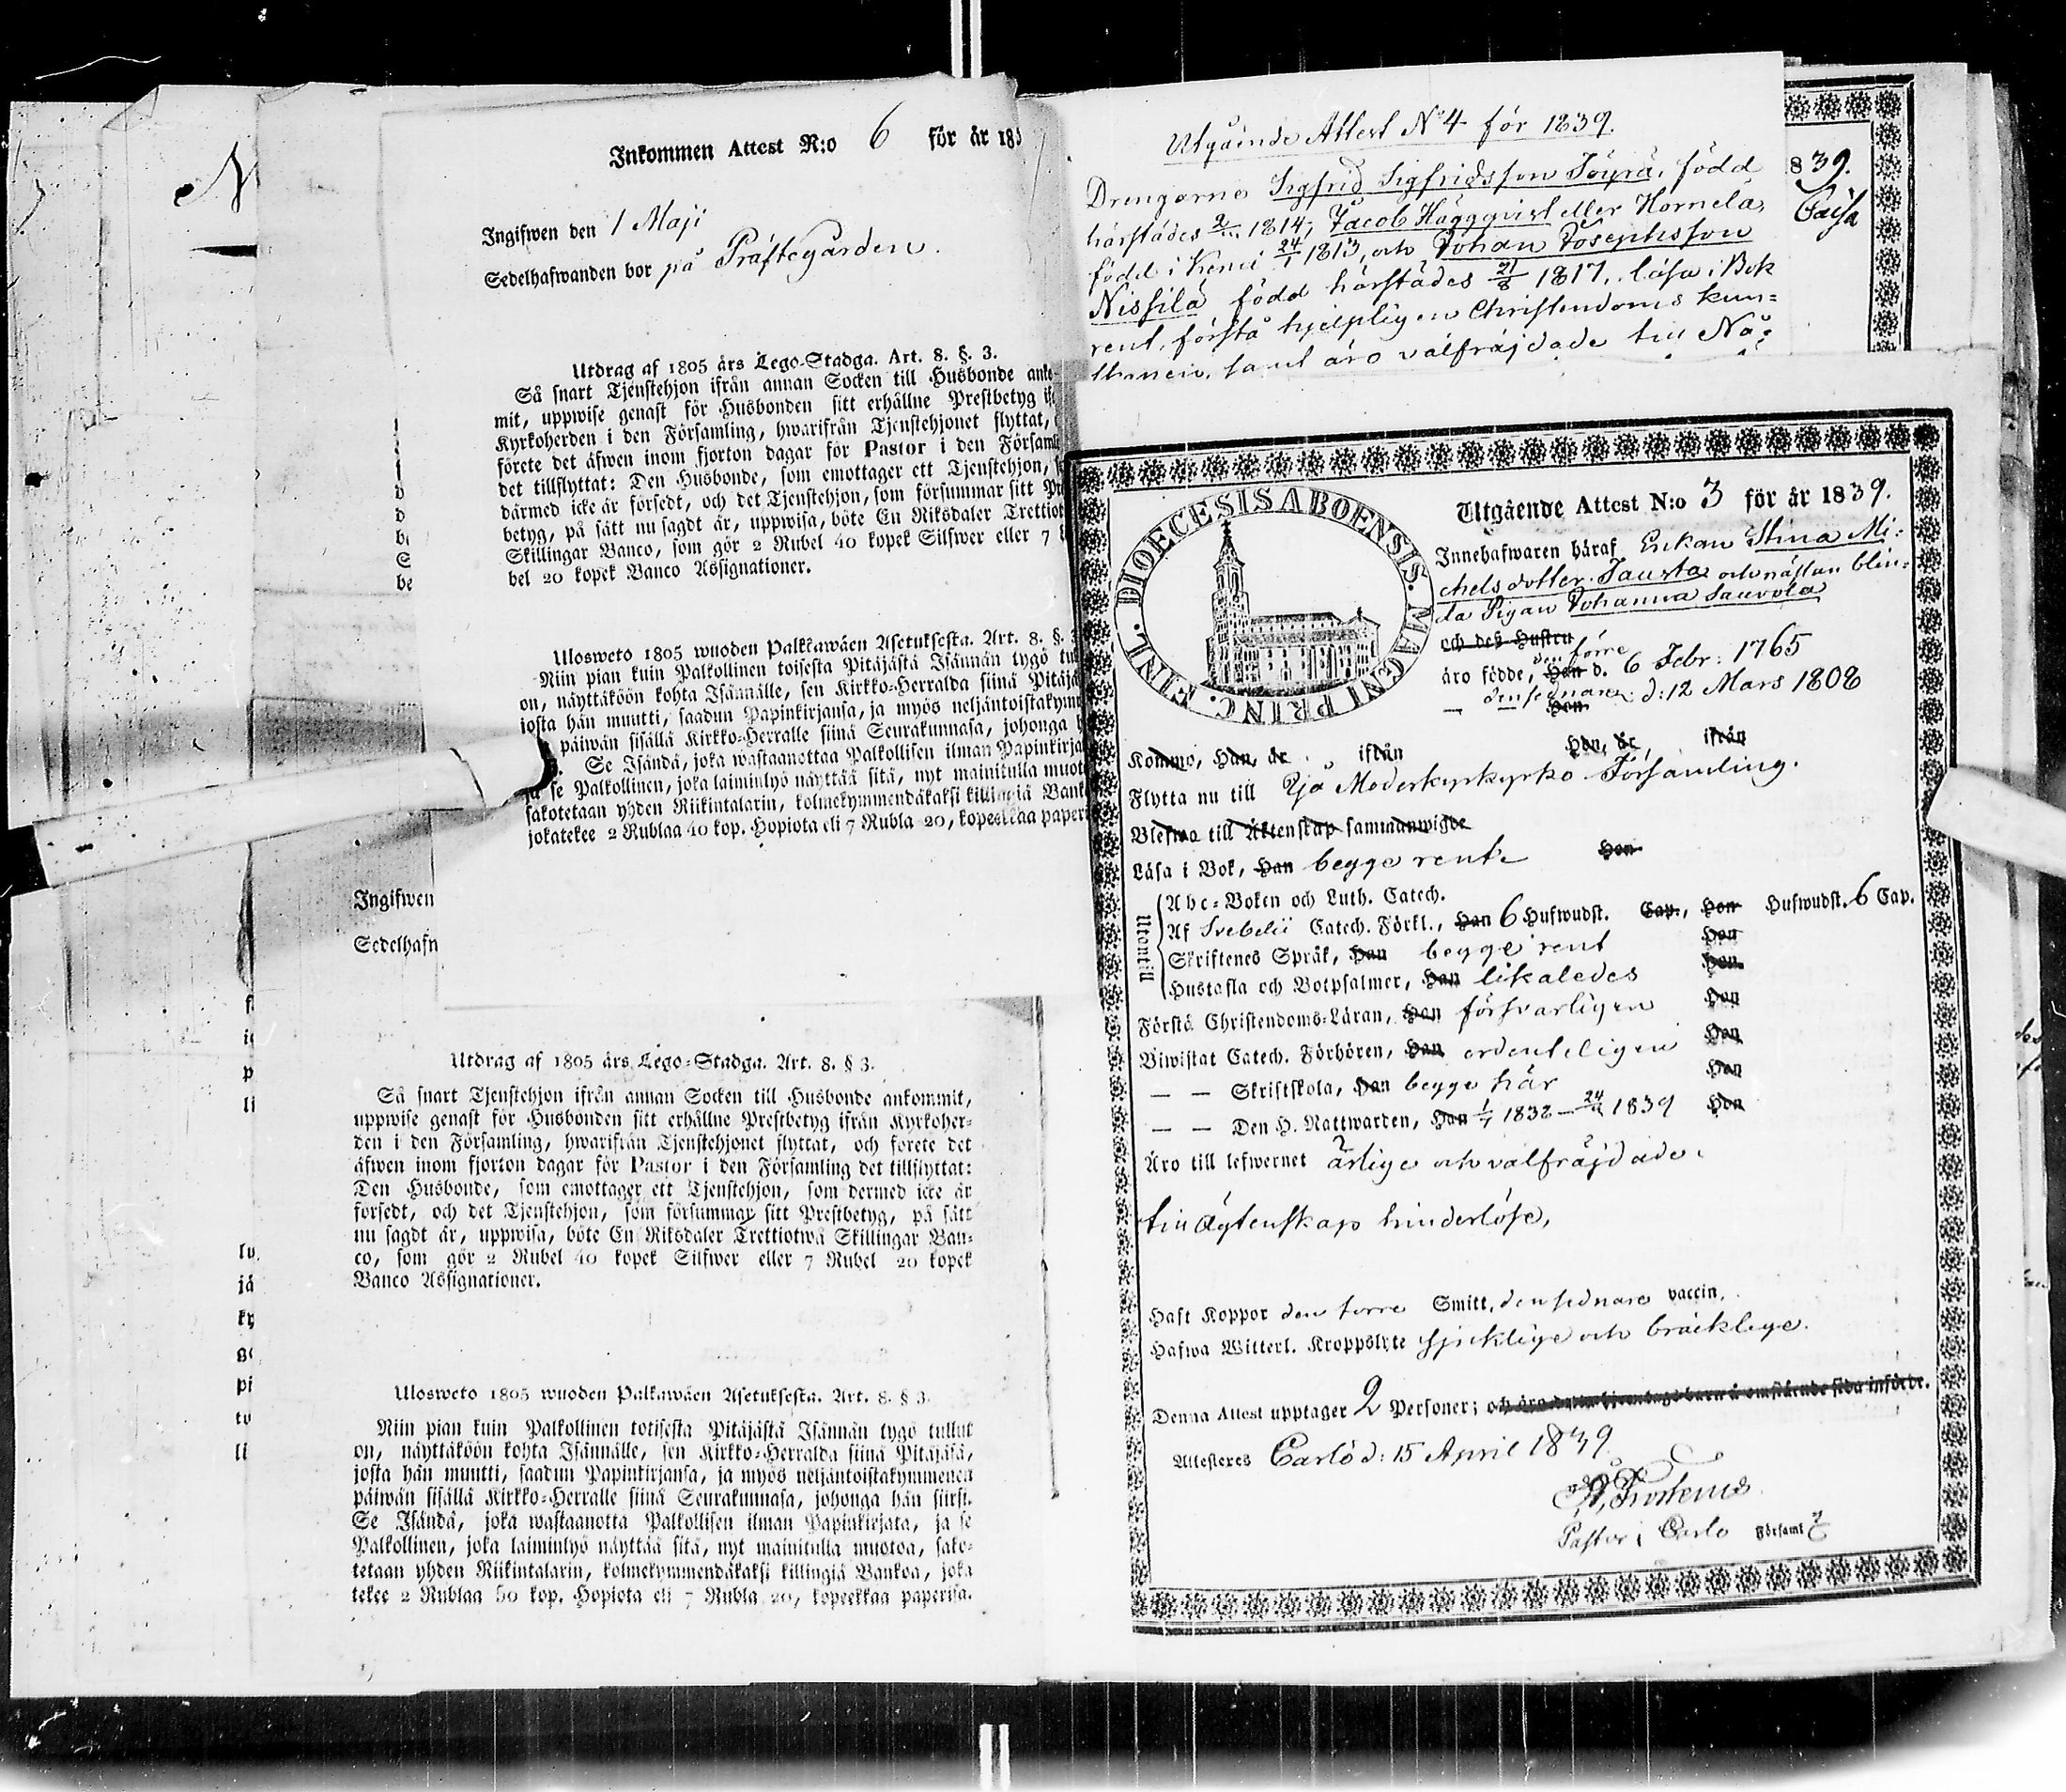 Inkommen Attest N:o 6 för år 183
Ingifwen den 1 Maji
Sedelhafwanden bor på Prästegården.
Utdrag af 1805 års Lego-Stadga. Art. 8. §. 3.
Så snart Tjenstehjon ifrån annan Socken till Husbonde anko-
mit, uppwise genast för Husbonden sitt erhållne Prestbetyg
Kyrkoherden i den Församling, hwarifrån Tjenstehjonet flyttat,
förete det äfwen inom fjorton dagar för Pastor i den Församl
det tillflyttat: Den Husbonde, som emottager ett Tjenstehjon,
därmed icke är försedt, och det Tjenstehjon, som försummar sitt Pr
betyg, på sätt nu sagdt är, uppwisa, böte En Riksdaler Trettiot
Skillingar Banco, som gör 2 Rubel 40 kopek Silfwer eller 7
bel 20 kopek Banco Assignationer.
Ulosweto 1805 wuoden Palkkawäen Asetuksesta. Art. 8. §.
Niin pian kuin Palkollinen toisesta Pitäjästä Isännän tygö tul
on, näyttäköön kohta Isännälle, sen Kirkko-Herralda siinä Pitäjä
josta hän muutti, saadun Papinkirjansa, ja myös neljäntoistakymm
päiwän sisällä Kirkko-Herralle siinä Seurakunnasa, johonga
Se Isändä, joka wastaanottaa Palkollisen ilman Papinkirja
ja se Palkollinen, joka laiminlyö näyttää sitä, nyt mainitulla muoto
sakotetaan yhden Riikintalarin, kolmekymmendäkaksi killingiä Bank
jokatekee 2 Rublaa 40 kop. Hopiota eli 7 Rubla 20, kopeekkaa paperi
Ingifwen
Sedelhafw
Utdrag af 1805 års Lego-Stadga. Art. 8. § 3.
Så snart Tjenstehjon ifrån annan Socken till Husbonde ankommit,
uppwise genast för Husbonden sitt erhållne Prestbetyg ifrån Kyrkoher-
den i den Församling, hwarifrån Tjenstehjonet flyttat, och förete det
äfwen inom fjorton dagar för Pastor i den Församling det tillflyttat:
Den Husbonde, som emottager ett Tjenstehjon, som dermed icke är
försedt, och det Tjenstehjon, som försummar sitt Prestbetyg, på sätt
nu sagdt är, uppwisa, böte En Riksdaler Trettiotwå Skillingar Ban-
co, som gör 2 Rubel 40 kopek Silfwer eller 7 Rubel 20 kopek
Banco Assignationer.
Ulosweto 1805 wuoden Palkawäen Asetuksesta. Art. 8. § 3.
Niin pian kuin Palkollinen totisesta Pitäjästä Isännän tygö tullut
on, näyttäköön kohta Isännälle, sen Kirkko-Herralda siinä Pitäjäsä,
josta hän muutti, saadun Papinkirjansa, ja myös neljäntoistakymmenen
päiwän sisällä Kirkko-Herralle siinä Seurakunnasa, johonga hän siirst.
Se Isändä, joka wastaanotta Palkollisen ilman Papinkirjata, ja se
Palkollinen, joka laiminlyö näyttää sitä, nyt mainitulla muotoa, sako-
tetaan yhden Riikintalarin, kolmekymmendäkaksi killingiä Bankoa, joka
tekee 2 Rublaa 80 kop. Hopiota eli 7 Rubla 20, kopeekkaa paperisa.
Utgående Attest No 4 för 1839.
Drengarne Sigfrid Sigfridsson Töyrä, född
härstädes 1814; Jacob Häggqvist eller Hornela,
född i Kemi 24/1 1813, och Johan Josephsson
Nissilä född härstädes 21/8 1817, läsa i Bok
rent, förstå hjelpligen Christendoms kun-
samt äro välfräjdade till Na-
839.
Utgående Attest N:o 3 för år 1839.
DIOECESIS ABOENSIS. MAGNI PRINC. FINL.
Innehafwaren häraf Enkan Stina Mi-
chelsdotter Tausta och nästan blin-
da Pigan Johanna Sauvola
och deß Hustru
äro födde, Han den förre d. 6 Febr: 1765
— Hon den sednare d: 12 Mars 1808
Kommo, Han, år ifrån Hon, år, ifrån
Flytta nu till Ijo Moderkyrkko Församling.
Blefwo till Äktenskap sammanwigde
Läsa i Bok, Han begge rent Hon
Utantill
Abc-Boken och Luth. Catech.
Af Svebelii Catech. Förkl., Han 6 Hufwudst. Cap., Hon Hufwudst. 6 Cap.
Skriftenes Språk, Han begge rent Hon
Hustafla och Botpsalmer, Han likaledes Hon
Förstå Christendoms-Läran, Han försvarligen Hon
Biwistat Catech. Förhören, Han ordenteligen Hon
— — Skriftskola, Han begge här Hon
— — Den H. Nattwarden, Han 1/7 1838 — 1839 Hon
Äro till lefwernet ärlige och välfräjdade.
till Ägtenskap hinderlöse,
Haft Koppor den förre Smitt, den sednare vaccin.
Hafwa Witterl. Kroppslyte sjuklige och bräcklige.
Denna Attest upptager 2 Personer;
Attesteras Carlö d: 15 April 1839
Pastor i Carlö Församl